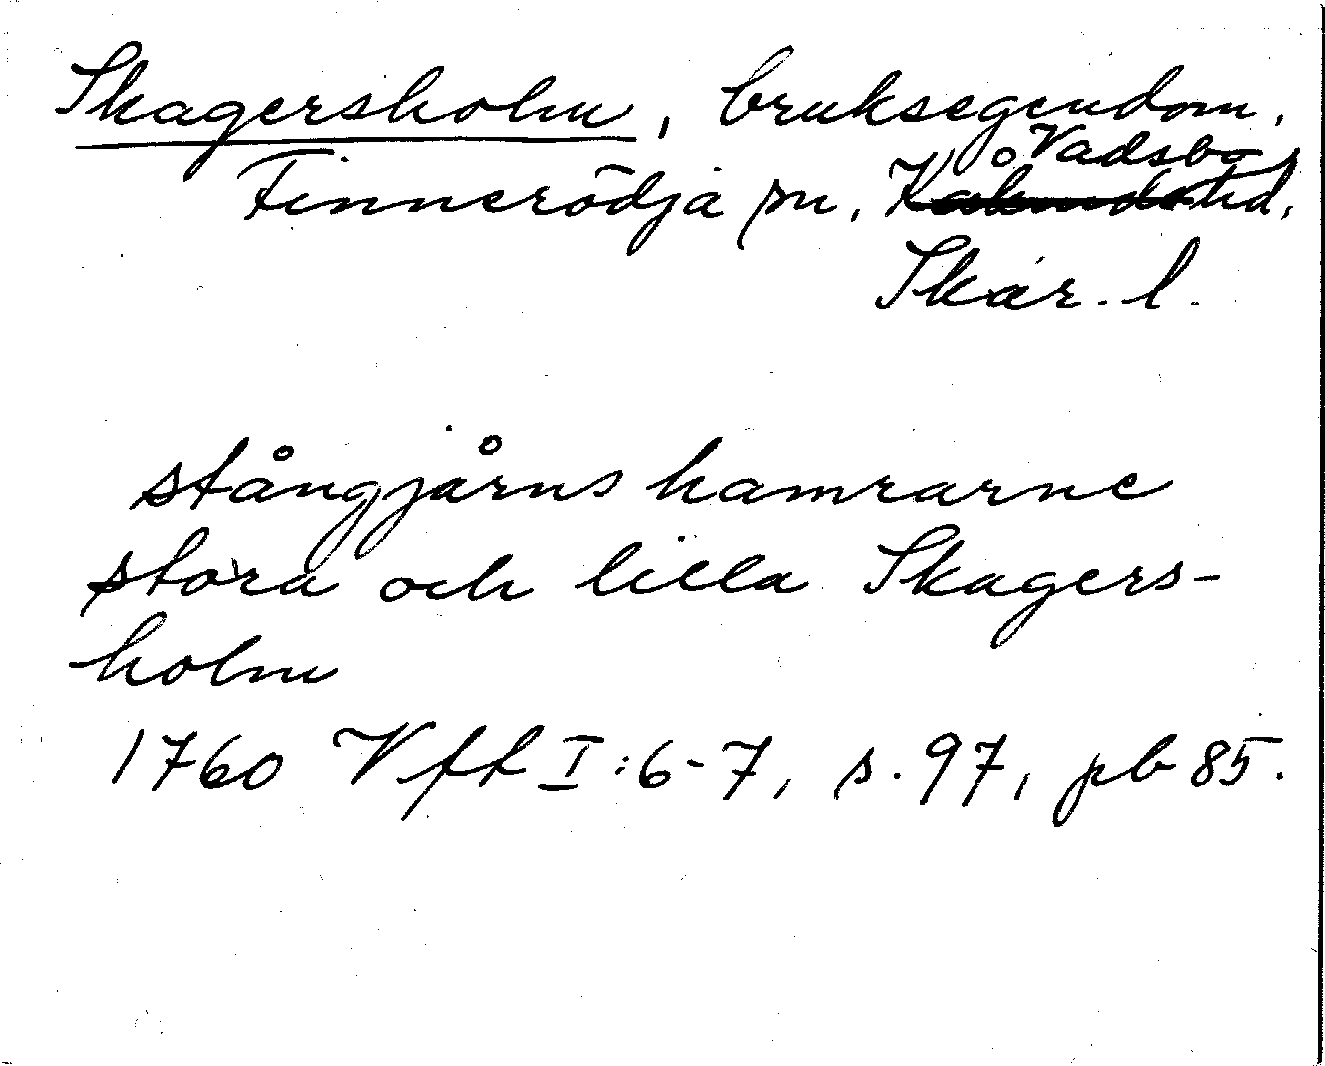 Skagersholm, bruksegendom,
Vadsbo
Finnerödja sn, hd,
Skar. l.
stångjårns hamrarne
stora och lilla Skagers-
holm
1760 Vft I:6-7, s. 97, pb 85.